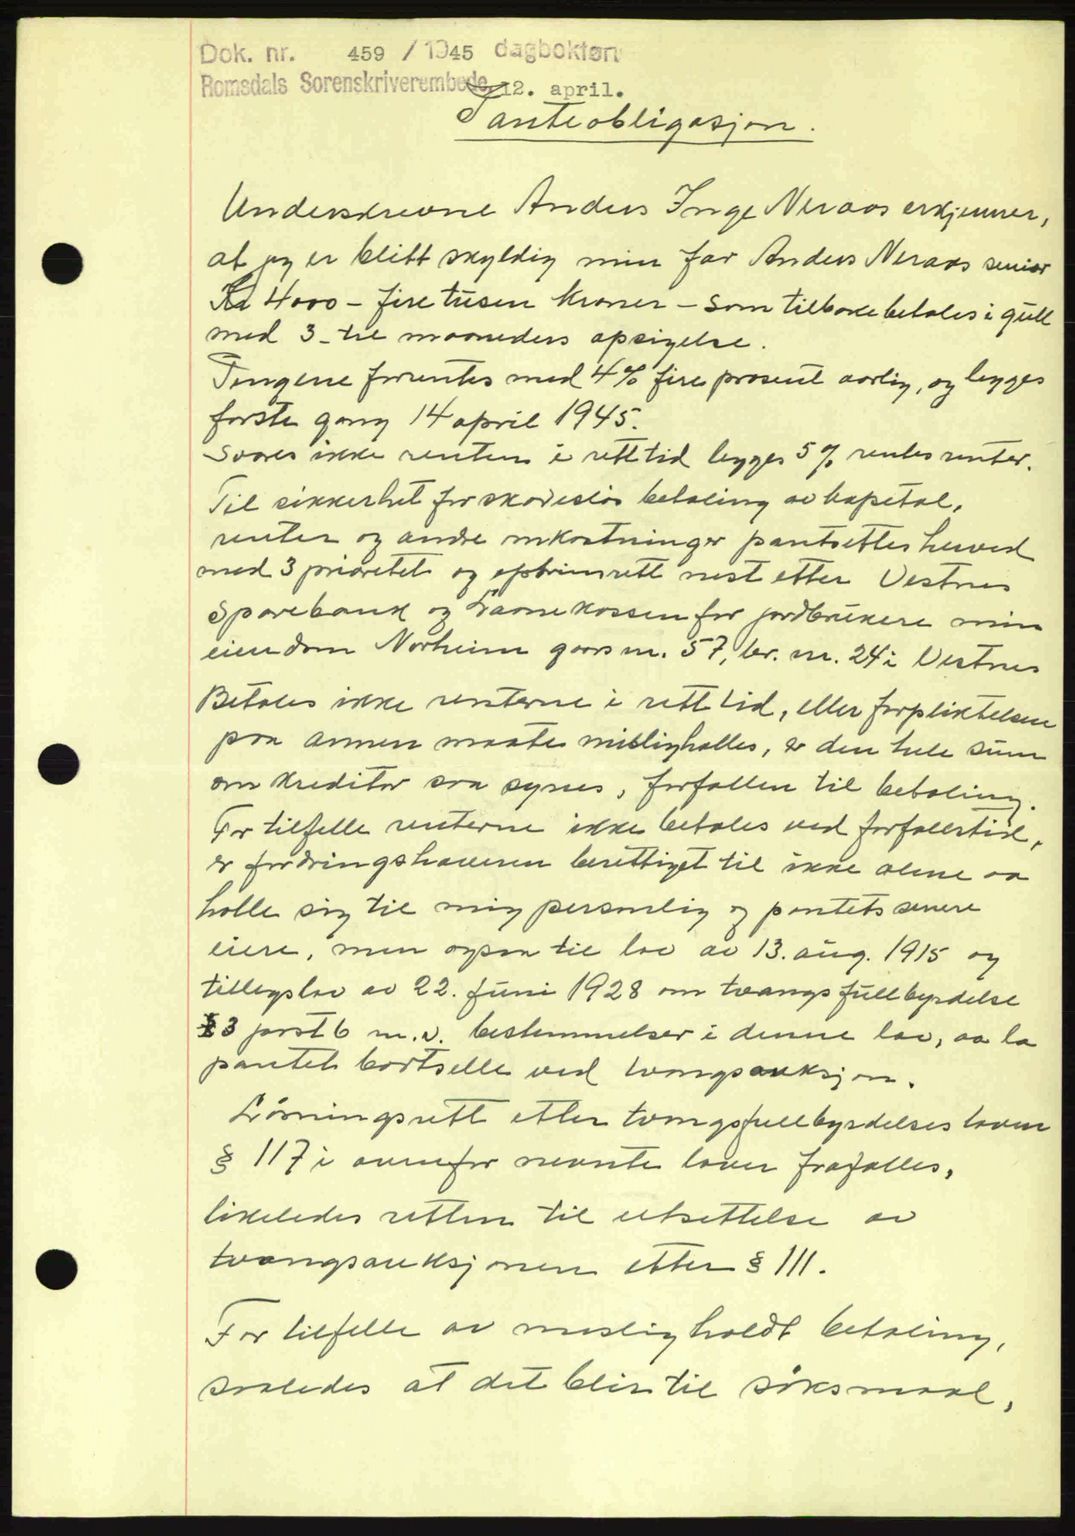 Dok. nr. 459 / 1945 dagbokført
Romsdals Sorenskriverembede 12. april.
Panteobligasjon.
Underskrevne Anders Inge Neraas erkjenner,
at jeg er blitt skyldig min far Anders Neraas senior
Kr 4000 – fire tusen kroner – som tilbakebetales i gull
med 3 – tre maaneders opsigelse.
Pengene forrentes med 4% fire prosent aarlig, og legges
første gang 14 april 1945.
Svares ikke renten i rett tid legges 5% rentes renter.
Til sikkerhet for skadesløs betaling av kapital,
renter og andre omkostninger pantsettes herved
med 3 prioritet og optrinsrett nest etter Vestnes
Sparebank og Laanekassen for jordbrukere min
eiendom Norheim gaars nr. 57, br. nr. 24 i Vestnes
Betales ikke renterne i rett tid, eller forpliktelsene
paa annen maate misligholles, er den hele sum
om kreditor saa synes, forfallen til betaling.
For tilfelle renterne ikke betales ved forfallstid,
er fordringshaveren berettiget til ikke alene aa
holle sig til mig personlig og pantets senere
eiere, men ogsaa til lov av 13. aug. 1915 og
tillegslov av 22. juni 1928 om tvangsfullbyrdelse
§ 3 post 6 m.v. bestemmelser i denne lov, aa la
pantet bortselle ved tvangsauksjon.
Løsningsrett etter tvangsfullbyrdelses loven
§ 117 i ovenfor nevnte lover frafalles,
likeledes retten til utsettelse av
tvangsauksjonen etter § 111.
For tilfelle av misligholdt betaling,
saaledes at det blir til søksmaal,